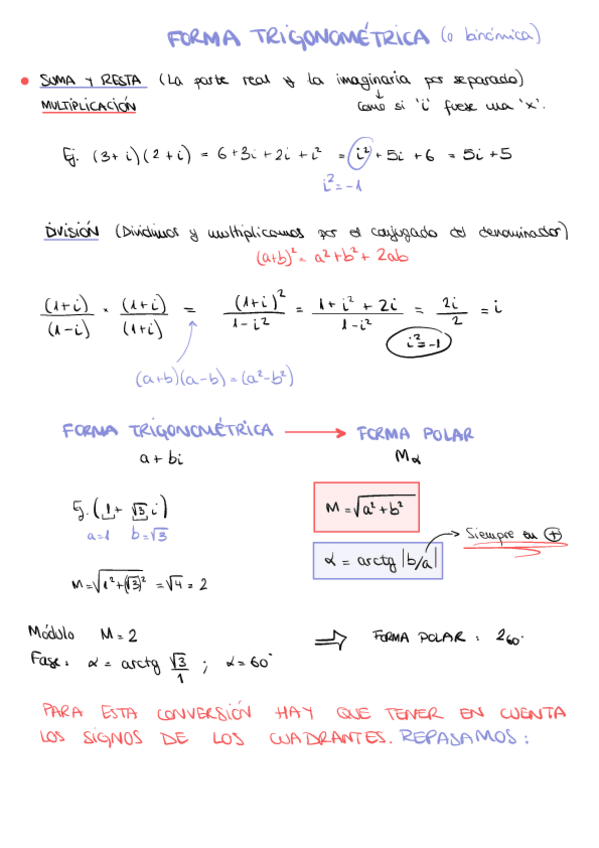 FORMA TRIGONOMÉTRICA (o binómica)
• SUMA Y RESTA (La parte real y la imaginaria por separado)
MULTIPLICACIÓN ↓ Como si 'i' fuese una 'x'.
Ej. (3+i)(2+i) = 6+3i+2i+i² = i²+5i+6 = 5i+5
i²=-1
DIVISIÓN (Dividimos y multiplicamos por el conjugado del denominador)
(a+b)² = a²+b²+2ab
(1+i)/(1-i) · (1+i)/(1+i) = (1+i)²/1-i² = 1+i²+2i/1-i² = 2i/2 = i
i²=-1
(a+b)(a-b)=(a²-b²)
FORMA TRIGONOMÉTRICA → FORMA POLAR
a+bi Mα
Ej. (1+√3i) M=√a²+b²
a=1 b=√3 Siempre en +
α = arctg |b/a|
M=√1²+(√3)² = √4 = 2
Módulo M=2 ⇒ FORMA POLAR: 260°
Fase: α = arctg √3/1 ; α=60°
PARA ESTA CONVERSIÓN HAY QUE TENER EN CUENTA
LOS SIGNOS DE LOS CUADRANTES. REPASAMOS: